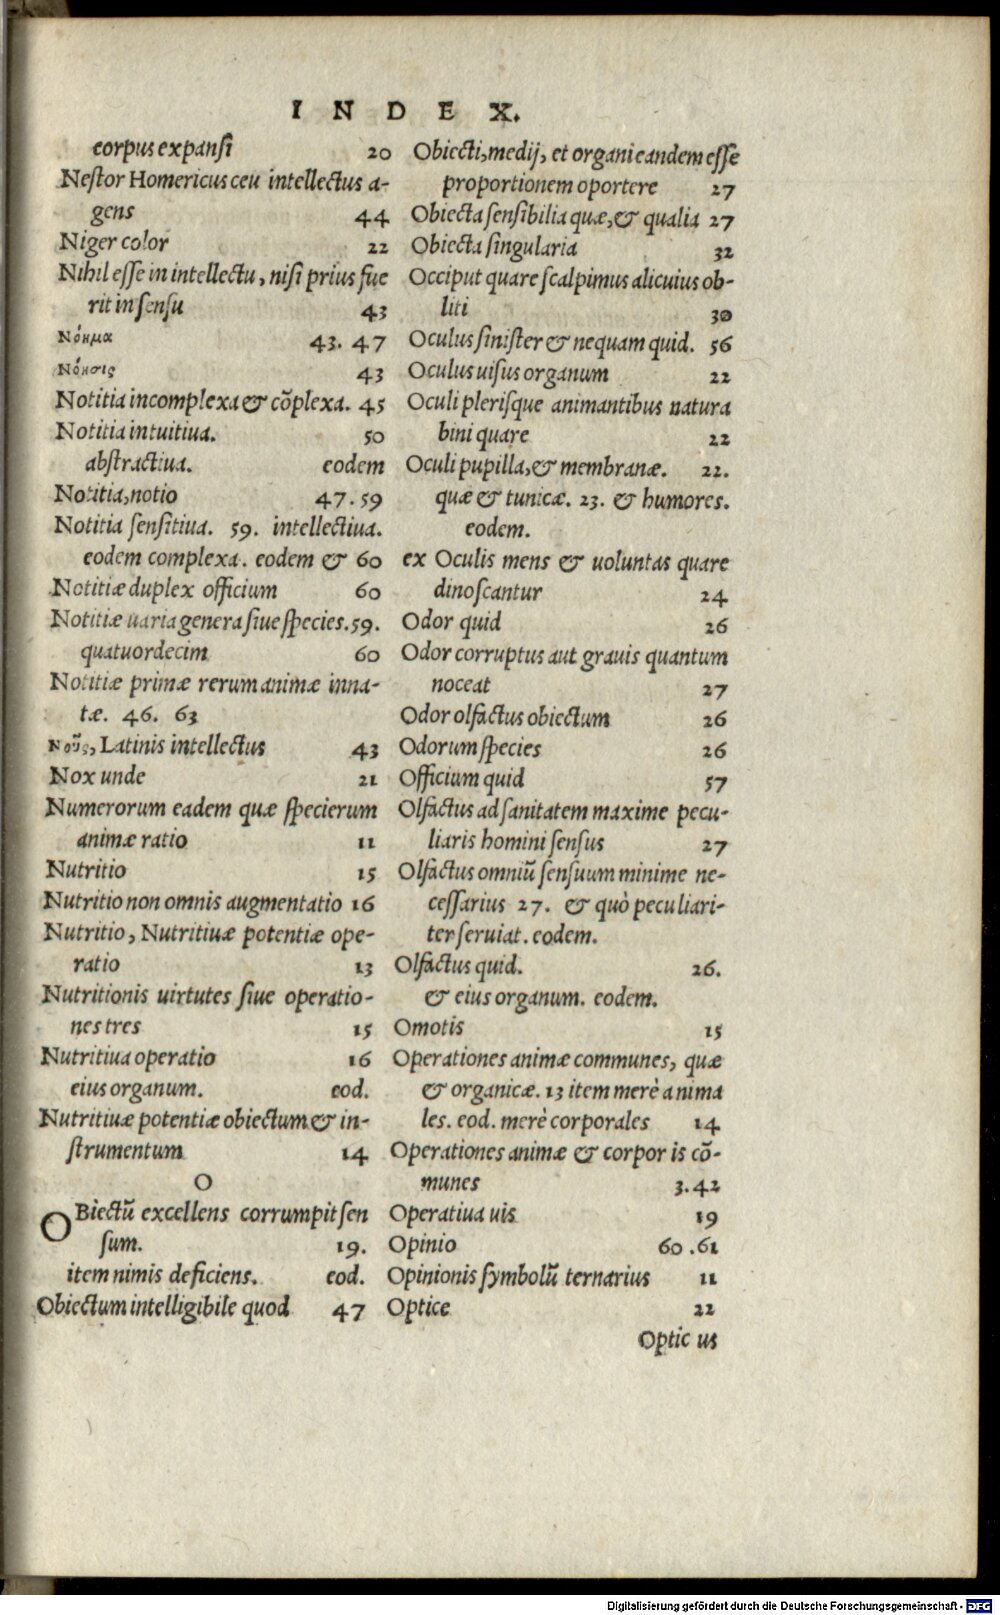 INDEX.
corpus expansi 20
Nestor Homericus ceu intellectus a-
gens 44
Niger color 22
Nihil esse in intellectu, nisi prius fue
rit in sensu 43
Νόημα 43. 47
Νόησις 43
Notitia incomplexa & cõplexa. 45
Notitia intuitiua. 50
abstractiua. eodem
Notitia, notio 47. 59
Notitia sensitiua. 59. intellectiua.
eodem complexa. eodem & 60
Notitiæ duplex officium 60
Notitiæ uaria genera siue species. 59.
quatuordecim 60
Notitiæ primæ rerum animæ inna-
tæ. 46. 63
Νοῦς, Latinis intellectus 43
Nox unde 21
Numerorum eadem quæ specierum
animæ ratio 11
Nutritio 15
Nutritio non omnis augmentatio 16
Nutritio, Nutritiuæ potentiæ ope-
ratio 13
Nutritionis uirtutes siue operatio-
nes tres 15
Nutritiua operatio 16
eius organum. eod.
Nutritiuæ potentiæ obiectum & in-
strumentum 14
O
OBiectũ excellens corrumpit sen
sum. 19.
item nimis deficiens. eod.
Obiectum intelligibile quod 47
Obiecti, medij, et organi eandem esse
proportionem oportere 27
Obiecta sensibilia quæ, & qualia 27
Obiecta singularia 32
Occiput quare scalpimus alicuius ob-
liti 30
Oculus sinister & nequam quid. 56
Oculus uisus organum 22
Oculi plerisque animantibus natura
bini quare 22
Oculi pupilla, & membranæ. 22.
quæ & tunicæ. 23. & humores.
eodem.
ex Oculis mens & uoluntas quare
dinoscantur 24
Odor quid 26
Odor corruptus aut grauis quantum
noceat 27
Odor olfactus obiectum 26
Odorum species 26
Officium quid 57
Olfactus ad sanitatem maxime pecu-
liaris homini sensus 27
Olfactus omniũ sensuum minime ne-
cessarius 27. & quò peculiari-
ter seruiat. eodem.
Olfactus quid. 26.
& eius organum. eodem.
Omotis 15
Operationes animæ communes, quæ
& organicæ. 13 item merè anima
les. eod. merè corporales 14
Operationes animæ & corporis cõ-
munes 3. 42
Operatiua uis 19
Opinio 60. 61
Opinionis symbolũ ternarius 11
Optice 22
Opticus
Digitalisierung gefördert durch die Deutsche Forschungsgemeinschaft - DFG